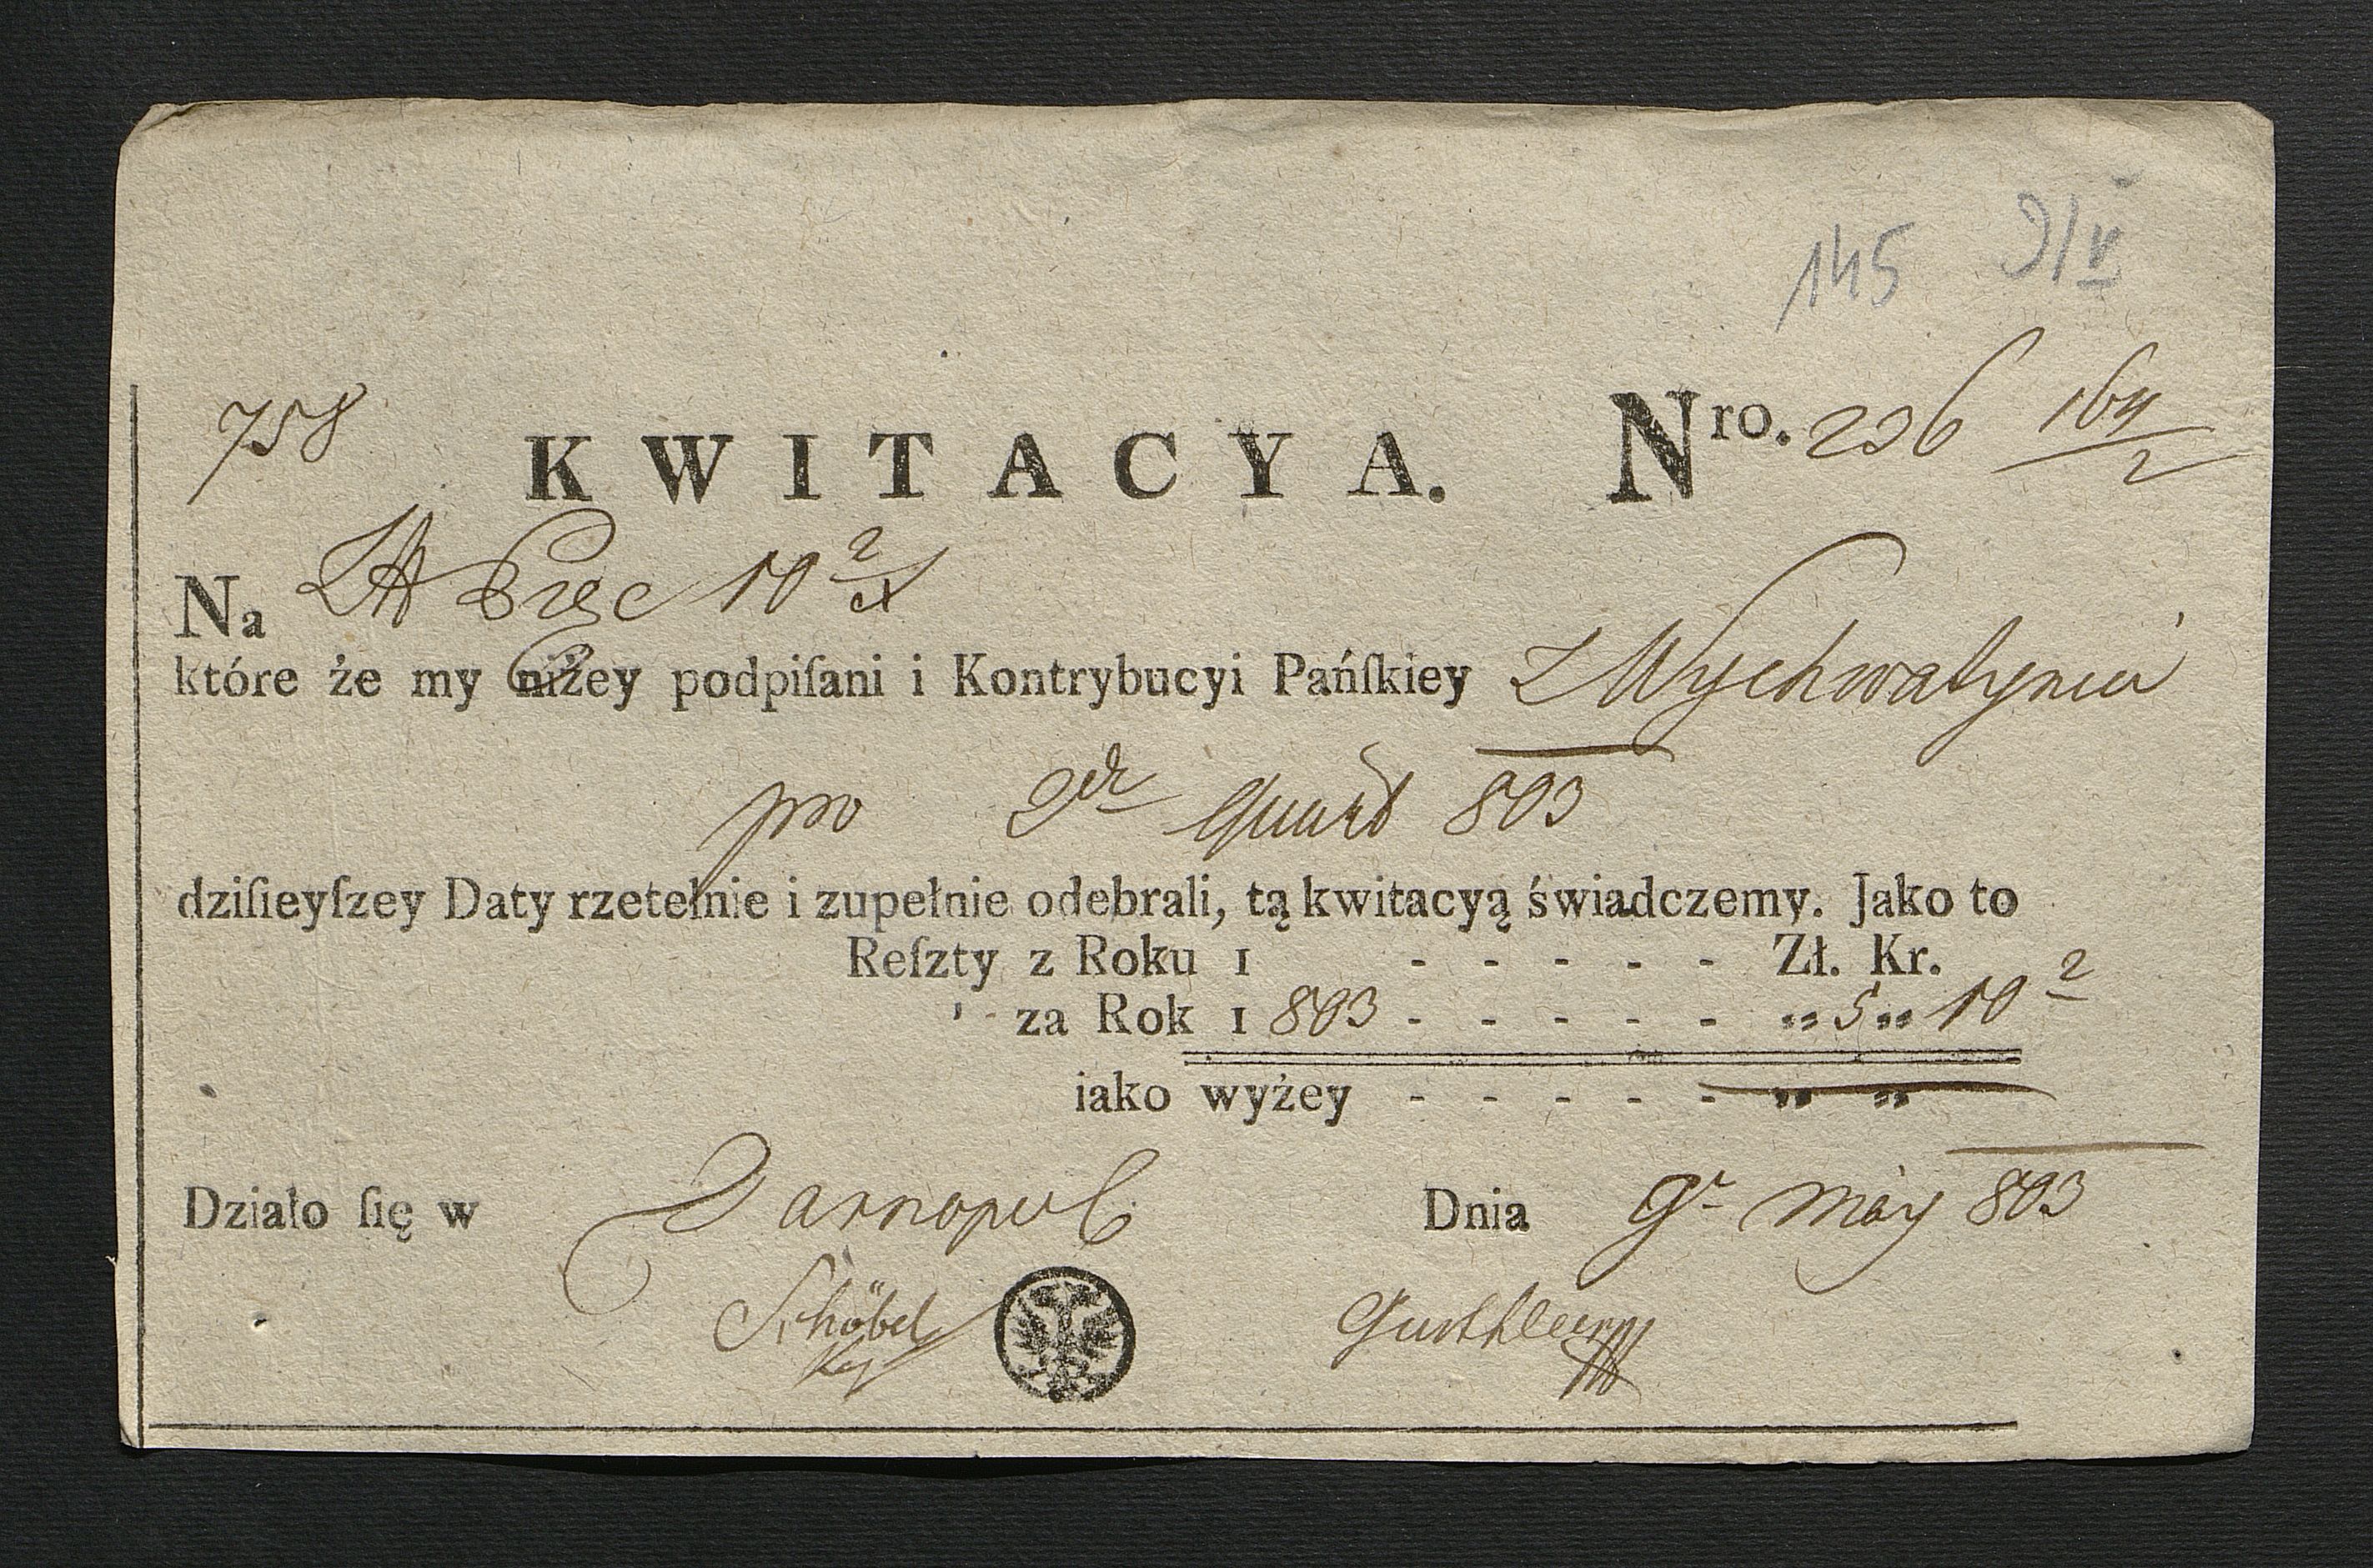 145 9/V
758 KWITACYA. Nro. 236 164/2
Na Zł Pięc 10 2/4 x
które że my niżey podpiſani i Kontrybucyi Pańſkiey z Wychwatynia
pro 2ch Quart 803
dziſieyſzey Daty rzetelnie i zupełnie odebrali, tą kwitacyą świadczemy. Jako to
Reſzty z Roku 1 - - - - - Zł. Kr.
za Rok 1803 - - - - - „ 5 „ 10 2
iako wyżey - - - - - „ „
Działo ſię w Tarnopol Dnia 9r May 803
Schöbel